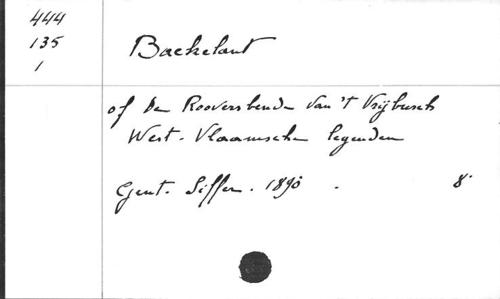 444
135
1
Backelant
of De Rooversbende van 't Vrybusch
West-Vlaamsche legenden
Gent. Siffer. 1890 . 8°